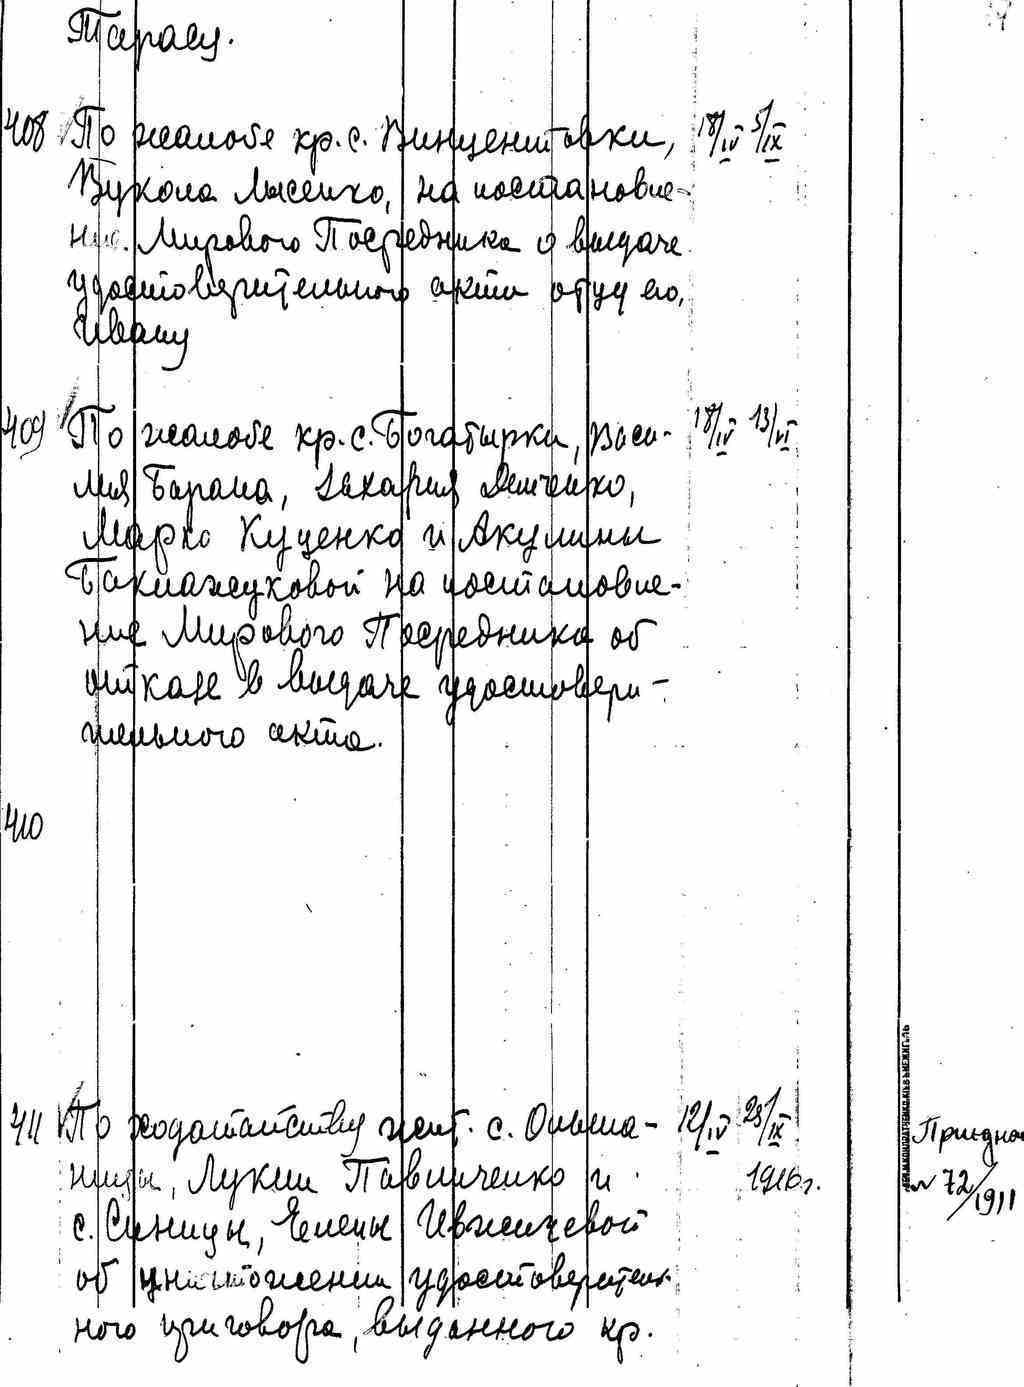 Тарасу.
408 По жалобе кр. с. Винцентовки, 18/IV 5/IX
Вукола Лысенко, на постановле-
ние Мирового Посредника о выдаче
удостоверительного акта отцу его,
Ивану
409 По жалобе кр. с. Богатырки, Васи- 18/IV 13/VI
лия Барана, Захария Демченко,
Марка Куценко и Акулины
Баклажуковой на постановле-
ние Мирового Посредника об
отказе в выдаче удостовери-
тельного акта.
410
411 По ходатайству жит. с. Ольша- 12/IV 23/IX
ницы, Лукии Павличенко и 1916г.
с. Синицы, Елены
об уничтожении удостоверитель-
ного приговора, выданного кр.
№ 72/1911